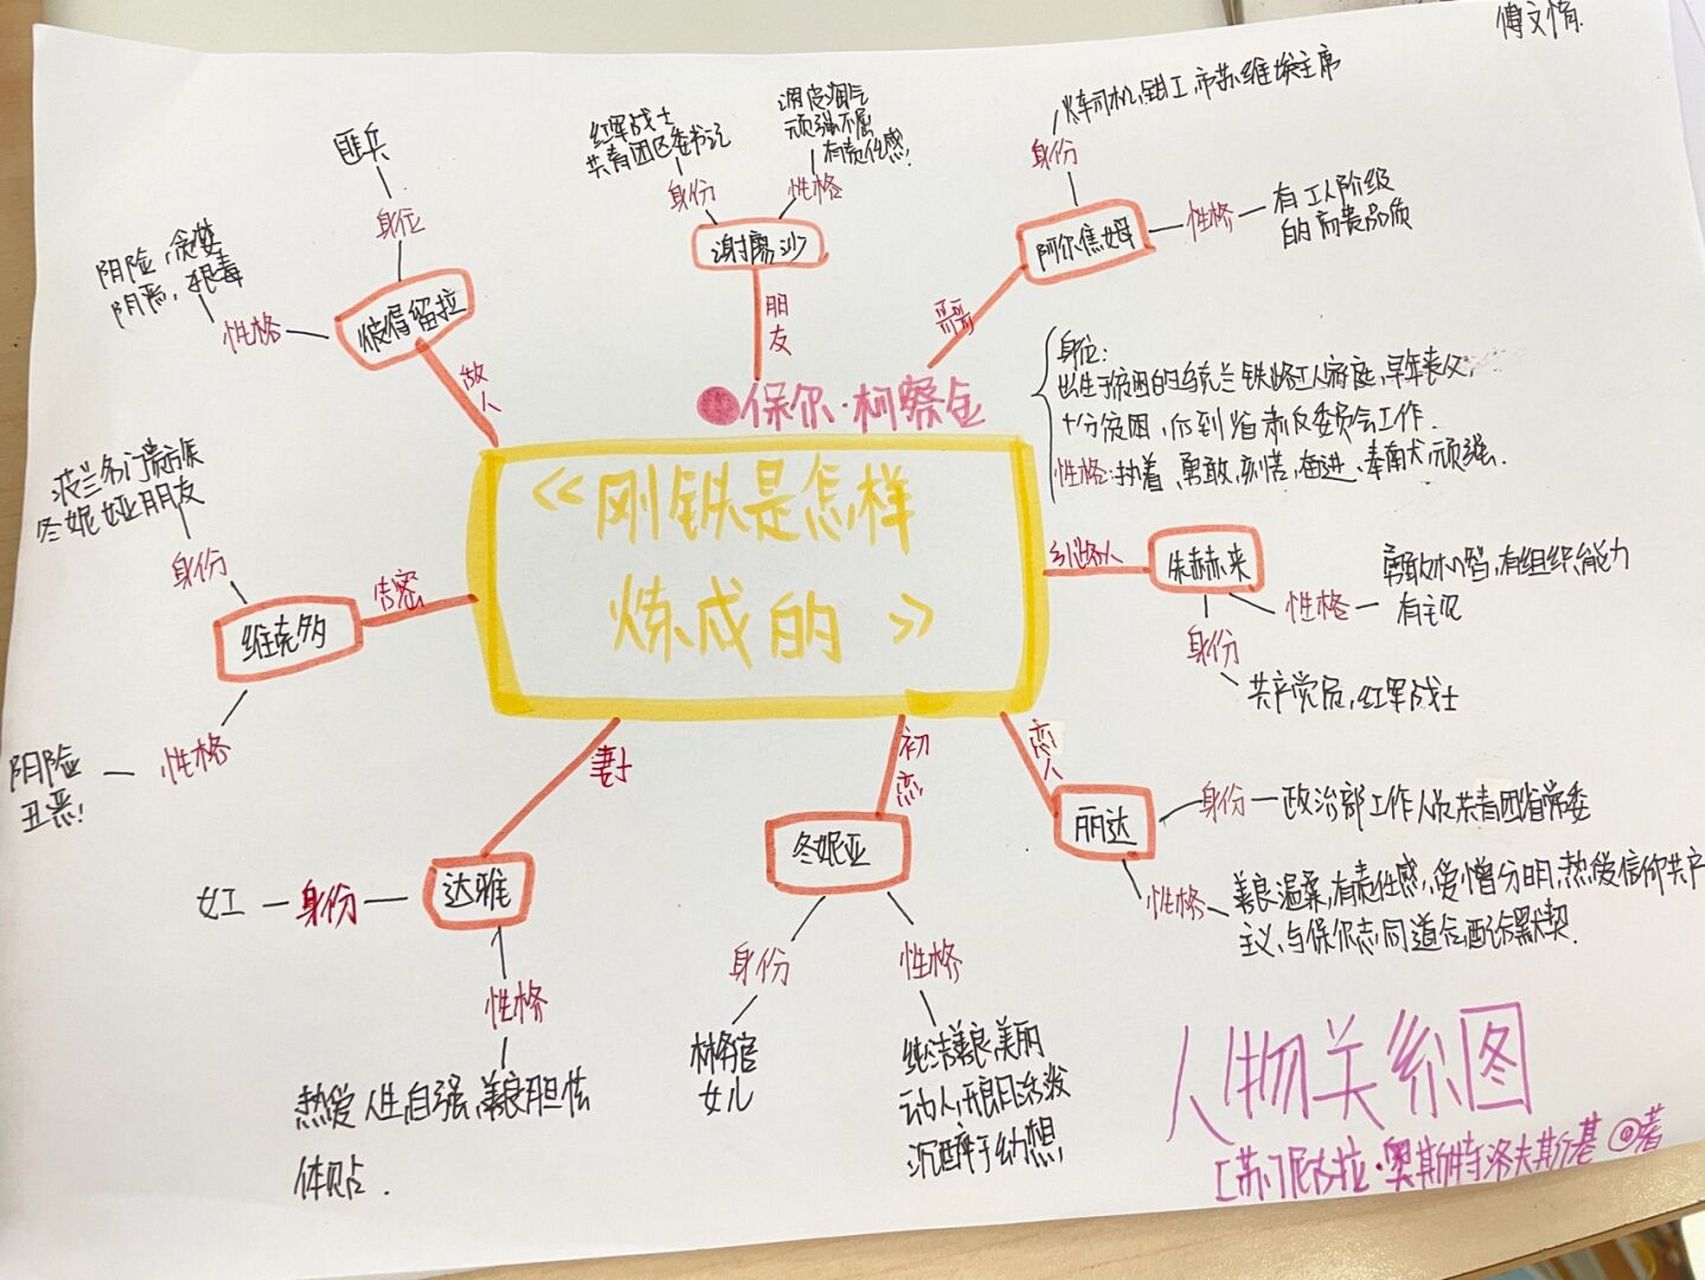 傅文情
匪兵
身位
阴险,贪婪
阴恶,狠毒
性格
彼得留拉
敌人
红军战士
共青团区委书记
身份
调皮淘气
顽强不屈
有责任感
性格
谢廖沙
朋友
火车司机,钳工,市苏维埃主席
身份
阿尔焦姆
性格
有工人阶级
的高贵品质
哥哥
保尔·柯察金
身位:
出生于贫困的乌克兰铁路工人家庭,早年丧父,
十分贫困,后到省肃反委员会工作.
性格:执着,勇敢,刻苦,奋进、奉献,顽强.
《刚铁是怎样
炼成的》
引路人
朱赫来
性格
勇敢机智,有组织能力
有主见
身份
共产党员,红军战士
恋人
丽达
身份
政治部工作人员共青团省常委
性格
善良温柔,有责任感,爱憎分明,热爱信仰共产
主义,与保尔志同道合,配合默契.
初恋
冬妮亚
身份
林务官
女儿
性格
纯洁善良,美丽
动人,开朗活泼
沉醉于幻想,
妻子
达雅
身份
女工
性格
热爱人生,自强,善良胆怯
体贴.
告密
维克多
身份
波兰名门贵族
冬妮娅朋友
性格
阴险
丑恶!
人物关系图
[苏]尼古拉·奥斯特洛夫斯基 ◎著